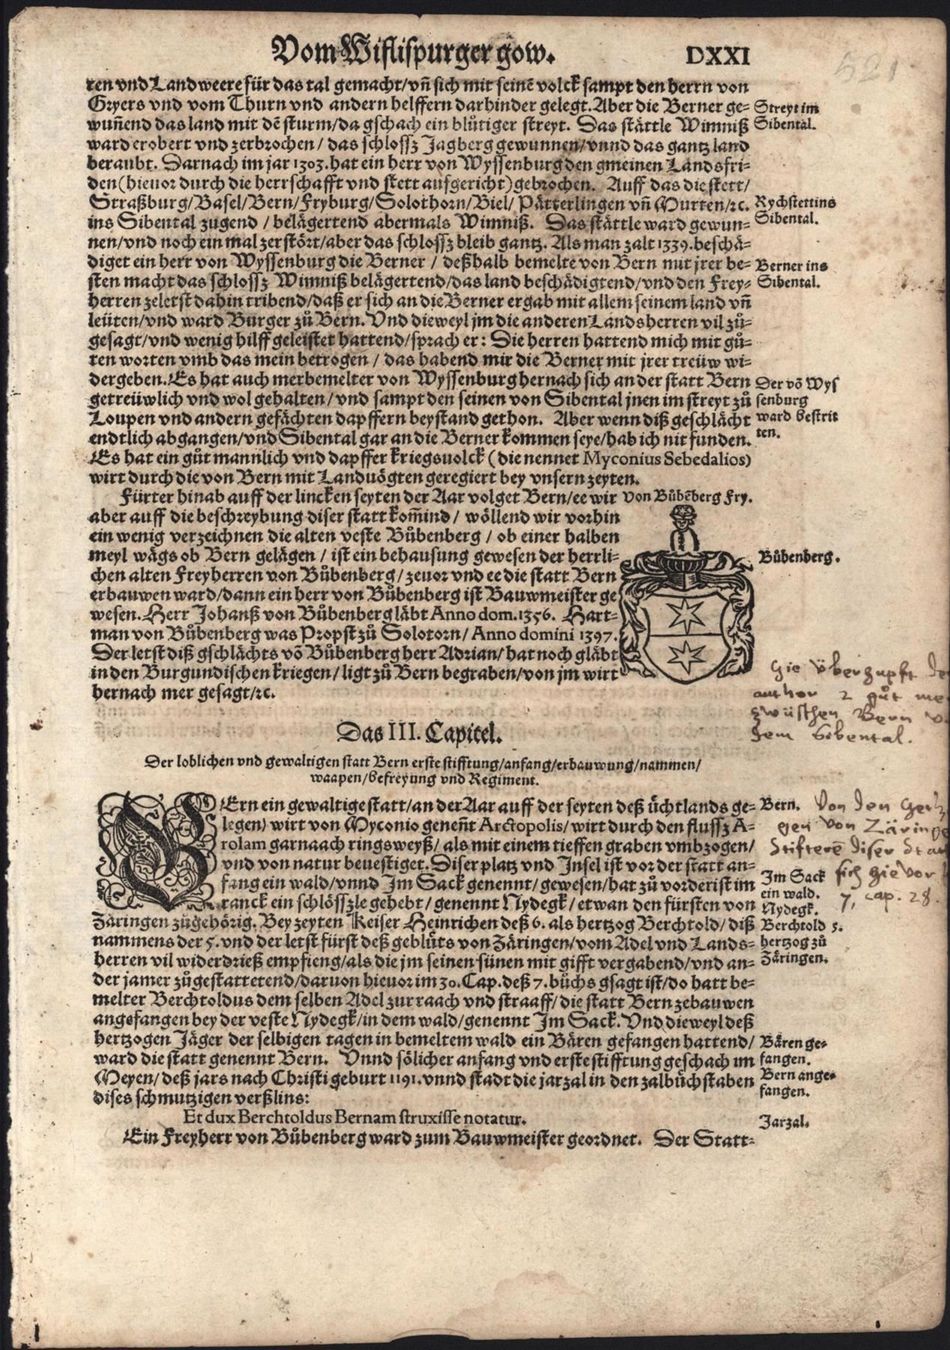 Vom Wiflispurger gow. DXXI
521
ren vnd Landweere für das tal gemacht/vñ sich mit seinē volck sampt den herrn von
Gryers vnd vom Thurn vnd andern helffern darhinder gelegt. Aber die Berner ge-
wuñend das land mit dē sturm/da gschach ein blůtiger streyt. Das stättle Wimniß
ward erobert vnd zerbrochen/ das schlossz Jagberg gewunnen/vnnd das gantz land
beraubt. Darnach im jar 1303. hat ein herr von Wyssenburg den gmeinen Landsfri-
den (hieuor durch die herrschafft vnd stett aufgericht) gebrochen. Auff das die stett/
Straßburg/Basel/Bern/Fryburg/Solothorn/Biel/ Pätterlingen vñ Murten/rc.
ins Sibental zugend / belägertend abermals Wimniß. Das stättle ward gewun-
nen/vnd noch ein mal zerstört/aber das schlossz bleib gantz. Als man zalt 1339. beschä-
diget ein herr von Wyssenburg die Berner / deßhalb bemelte von Bern mit jrer be-
sten macht das schlossz Wimniß belägertend/das land beschädigtend/vnd den Frey-
herren zeletst dahin tribend/daß er sich an die Berner ergab mit allem seinem land vñ
leüten/vnd ward Burger zů Bern. Vnd dieweyl jm die anderen Landsherren vil zů-
gesagt/vnd wenig hilff geleistet hattend/sprach er: Die herren hattend mich mit gů-
ten worten vmb das mein betrogen / das habend mir die Berner mit jrer treüw wi-
dergeben. Es hat auch merbemelter von Wyssenburg hernach sich an der statt Bern
getreüwlich vnd wol gehalten/ vnd sampt den seinen von Sibental jnen im streyt zů
Loupen vnd andern gefächten dapffern beystand gethon. Aber wenn diß geschlächt
endtlich abgangen/vnd Sibental gar an die Berner kommen seye/hab ich nit funden.
Es hat ein gůt mannlich vnd dapffer kriegsuolck (die nennet Myconius Sebedalios)
wirt durch die von Bern mit Landuögten geregiert bey vnsern zeyten.
Streyt im
Sibental.
Rychstett ins
Sibental.
Berner ins
Sibental.
Der võ Wys
senburg
ward bestrit
ten.
Fürter hinab auff der lincken seyten der Aar volget Bern/ee wir
aber auff die beschreybung diser statt kom̃ind / wöllend wir vorhin
ein wenig verzeichnen die alten veste Bůbenberg / ob einer halben
meyl wägs ob Bern gelägen / ist ein behausung gewesen der herrli-
chen alten Freyherren von Bůbenberg/zeuor vnd ee die statt Bern
erbauwen ward/dann ein herr von Bůbenberg ist Bauwmeister ge
wesen. Herr Johanß von Bůbenberg läbt Anno dom. 1356. Hart-
man von Bůbenberg was Propst zů Solotorn/ Anno domini 1397.
Der letst diß gschlächts võ Bůbenberg herr Adrian/ hat noch gläbt
in den Burgundischen kriegen/ ligt zů Bern begraben/von jm wirt
hernach mer gesagt/rc.
Von Bůbēberg Fry.
Bůbenberg.
hie überhupft
author 2 gůt
zwüschen Bern
dem Sibental.
Das III. Capitel.
Der loblichen vnd gewaltigen statt Bern erste stifftung/anfang/erbauwung/nammen/
waapen/befreyung vnd Regiment.
BErn ein gewaltige statt/an der Aar auff der seyten deß ůchtlands ge-
legen) wirt von Myconio genent Arctopolis/ wirt durch den flussz A-
rolam gar nach ringsweyß/ als mit einem tieffen graben vmbzogen/
vnd von natur beuestiget. Diser platz vnd Insel ist vor der statt an-
fang ein wald/vnnd Im Sack genennt/gewesen/hat zů vorderist im
ranck ein schlössle gehebt/ genennt Nydegk/ etwan den fürsten von
Zäringen zůgehörig. Bey zeyten Keiser Heinrichen deß 6. als hertzog Berchtold/ diß
nammens der 5. vnd der letst fürst deß geblůts von Zäringen/vom Adel vnd Lands-
herren vil widerdrieß empfieng/als die jm seinen sünen mit gifft vergabend/vnd an-
der jamer zůgestattetend/daruon hieuor im 30. Cap. deß 7. bůchs gsagt ist/do hatt be-
melter Berchtoldus dem selben Adel zur raach vnd straaff/ die statt Bern zebauwen
angefangen bey der veste Nydegk/in dem wald/genennt Im Sack. Vnd dieweyl deß
hertzogen Jäger der selbigen tagen in bemeltem wald ein Bären gefangen hattend/
ward die statt genennt Bern. Vnnd sölicher anfang vnd erste stifftung geschach im
Meyen/deß jars nach Christi geburt 1191. vnnd stadt die jarzal in den zalbůchstaben
dises schmutzigen verßlins:
Et dux Berchtoldus Bernam struxisse notatur.
Ein Freyherr von Bůbenberg ward zum Bauwmeister geordnet. Der Statt-
Bern.
Von den
gen von Zäringen
Stifteren diser Statt
sich hie vor
7, cap. 28.
Im Sack
ein wald.
Nydegk.
Berchtold 5.
hertzog zů
Zäringen.
Bären ge-
fangen.
Bern ange-
fangen.
Jarzal.